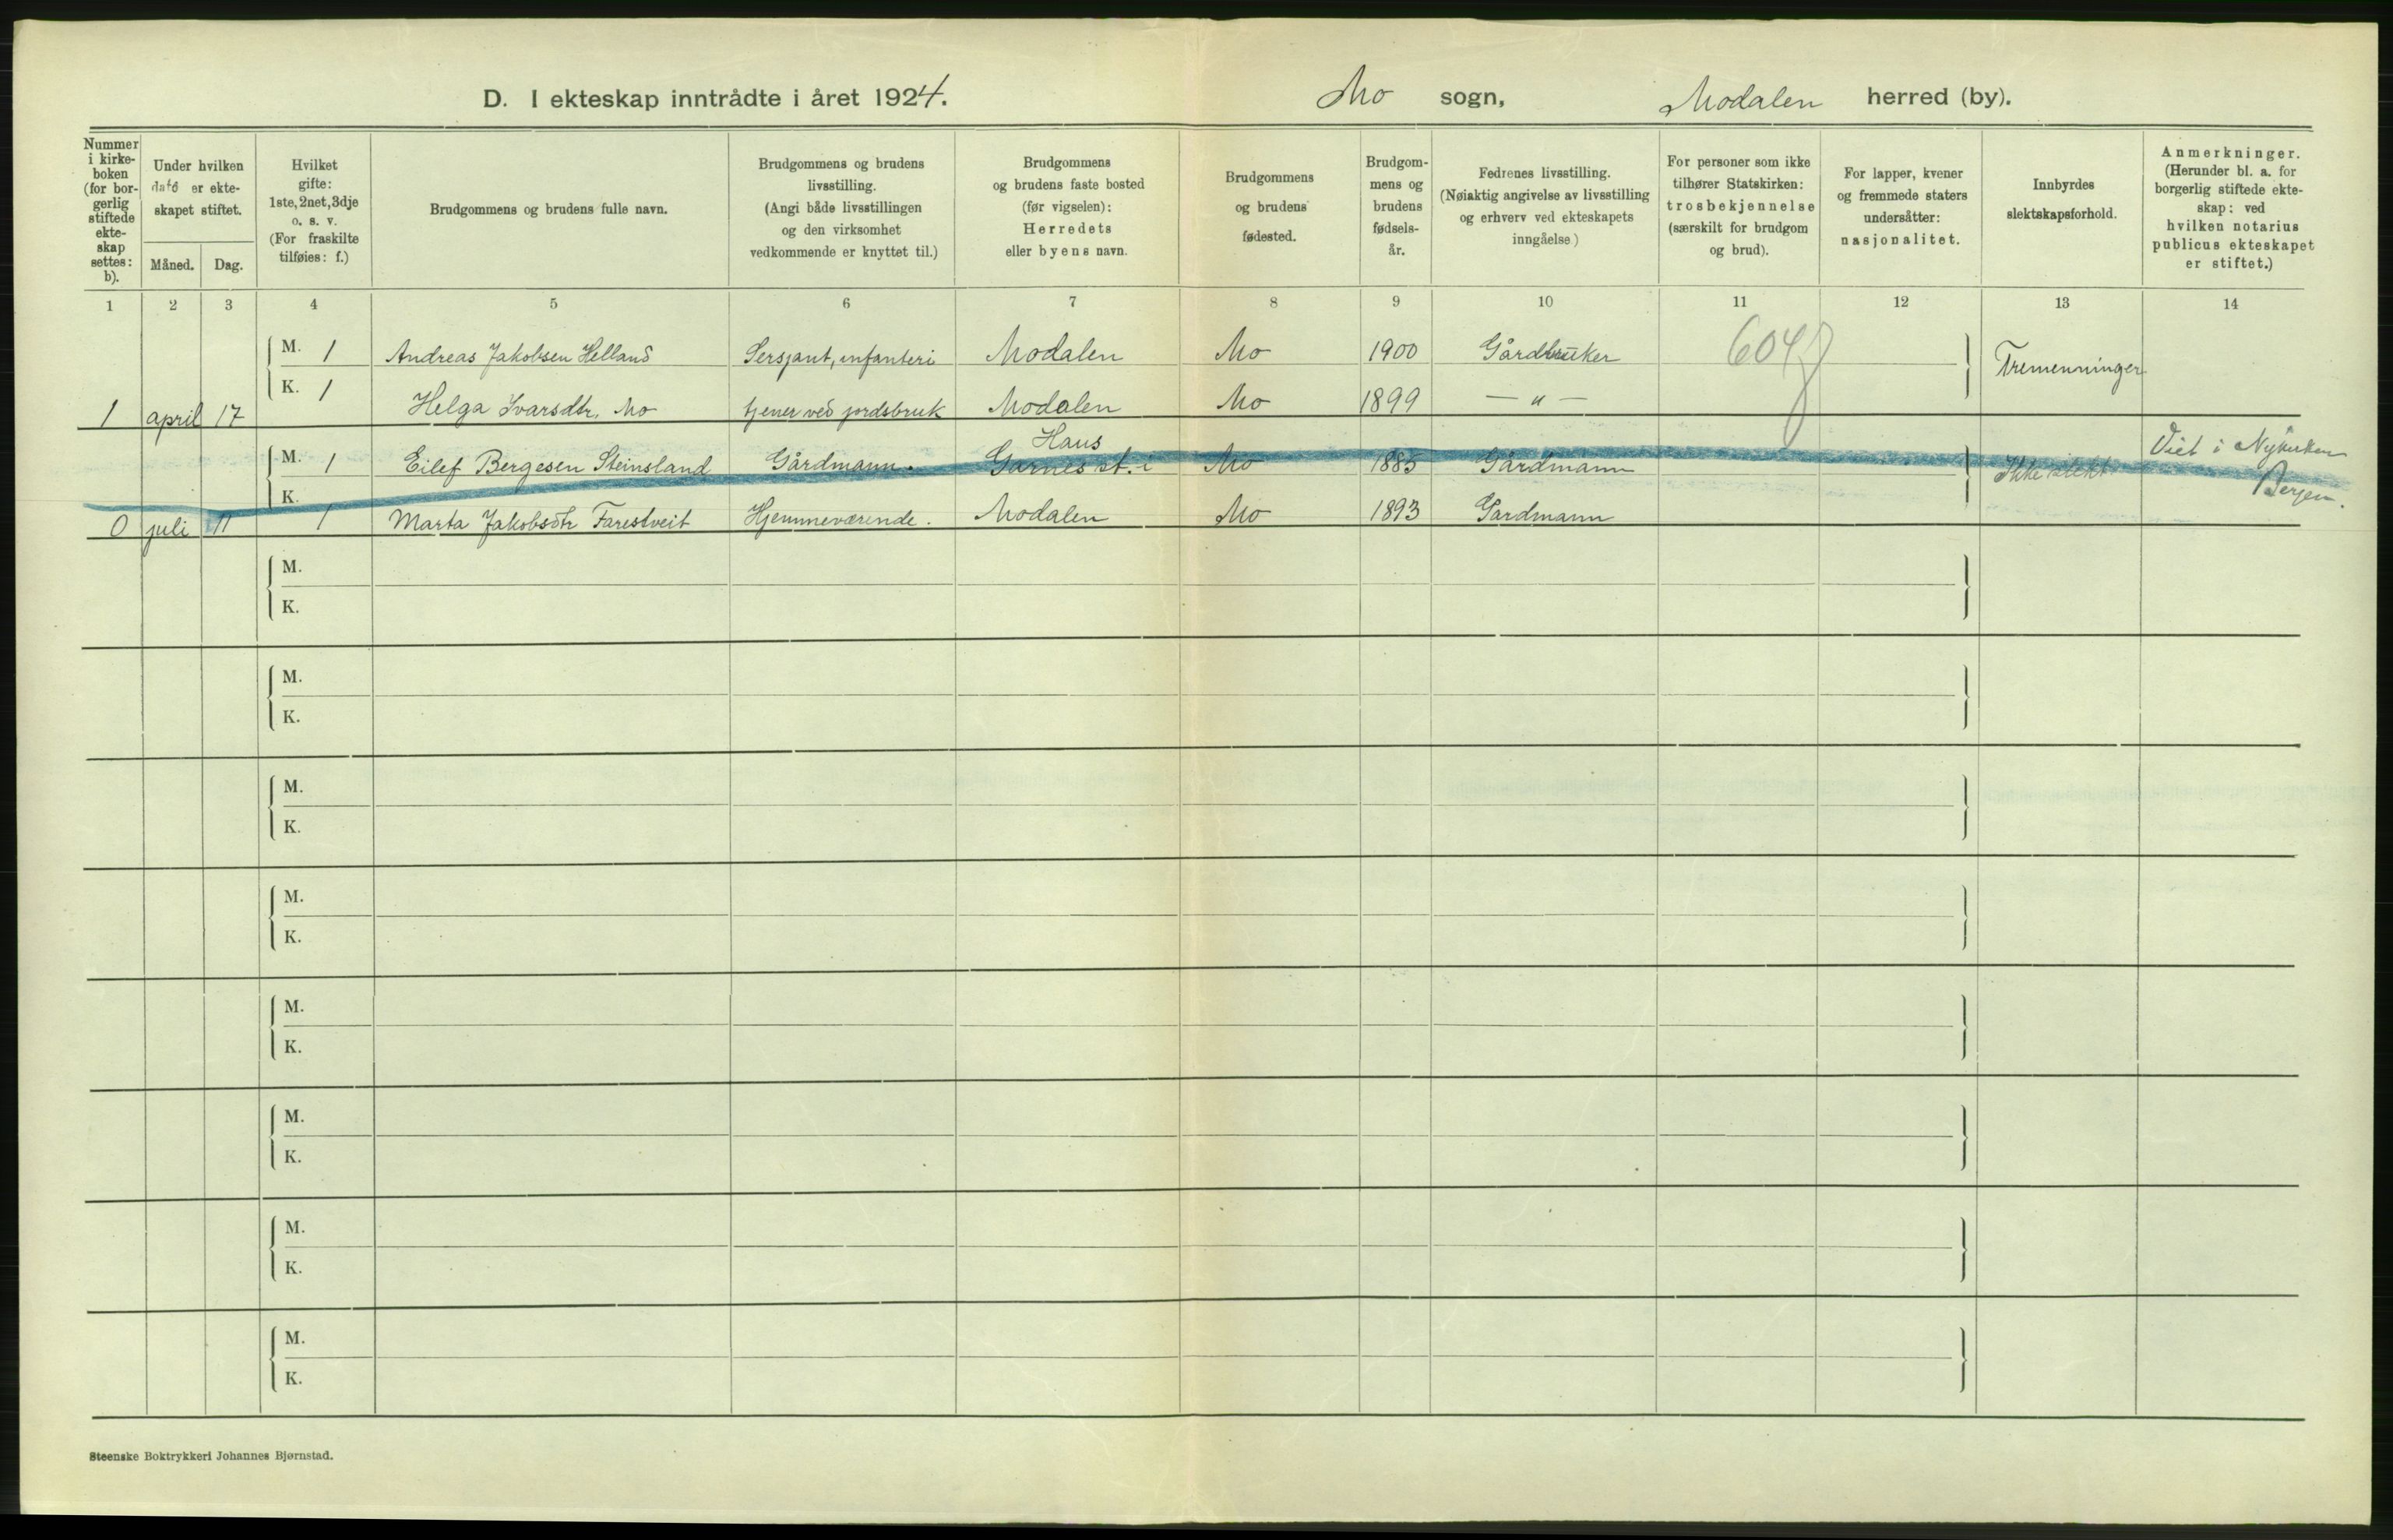 D. I ekteskap inntrådte i året 1924. Mo sogn, Modalen herred (by).
Nummer
i kirke-
boken
(for bor-
gerlig
stiftede
ekte-
skap
settes:
b).
Under hvilken
dato er ekte-
skapet stiftet.
Måned. Dag.
Hvilket
gifte:
1ste, 2net, 3dje
o. s. v.
(For fraskilte
tilføies: f.)
Brudgommens og brudens fulle navn.
Brudgommens og brudens
livsstilling.
(Angi både livsstillingen
og den virksomhet
vedkommende er knyttet til.)
Brudgommens
og brudens faste bosted
(før vigselen):
Herredets
eller byens navn.
Brudgommens
og brudens
fødested.
Brudgom-
mens og
brudens
fødsels-
år.
Fedrenes livsstilling.
(Nøiaktig angivelse av livsstilling
og erhverv ved ekteskapets
inngåelse)
For personer som ikke
tilhører Statskirken:
trosbekjennelse
(særskilt for brudgom
og brud).
For lapper, kvener
og fremmede staters
undersåtter:
nasjonalitet.
Innbyrdes
slektskapsforhold.
Anmerkninger.
(Herunder bl. a. for
borgerlig stiftede ekte-
skap: ved
hvilken notarius
publicus ekteskapet
er stiftet.)
1 2 3 4 5 6 7 8 9 10 11 12 13 14
M. 1 Andreas Jakobsen Helland Sersjant, infanteri Modalen Mo 1900 Gårdbruker 604 Tremenninger
1 april 17 K. 1 Helga Ivarsdtr. Mo tjener ved jordsbruk Modalen Mo 1899 — " —
Haus
M. 1 Eilef Bergesen Steinsland Gårdmann. Garnes st. i Mo 1885 Gårdmann Ikke slekt Viet i Nykirken
Bergen.
0 juli 11 K. 1 Marta Jakobsdtr Farestveit Hjemmeværende. Modalen Mo 1893 Gardmann
M.
K.
M.
K.
M.
K.
M.
K.
M.
K.
M.
K.
M.
K.
M.
K.
Steenske Boktrykkeri Johannes Bjørnstad.